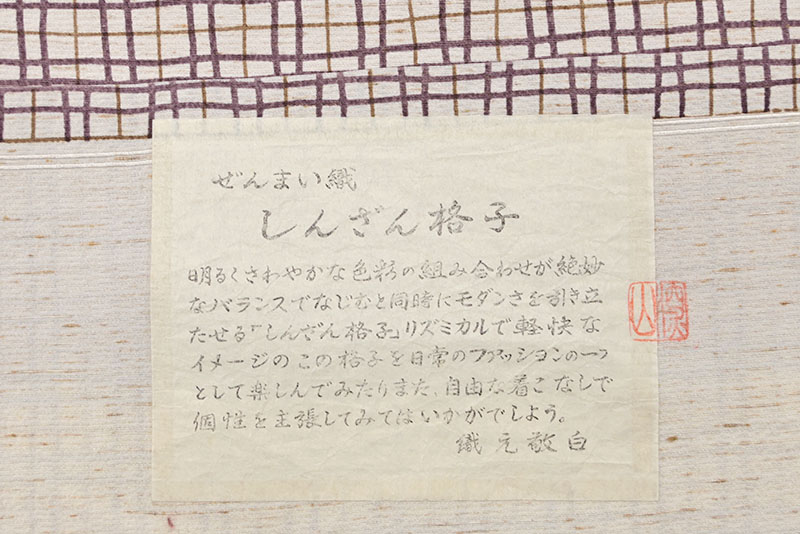 ぜんまい織
しんざん格子
明るくさわやかな色彩の組み合わせが絶妙
なバランスでなじむと同時にモダンさを引き立
たせる「しんざん格子」リズミカルで軽快な
イメージのこの格子を日常のファッションの一つ
として楽しんでみたりまた、自由な着こなしで
個性を主張してみてはいかがでしょう。
織元敬白